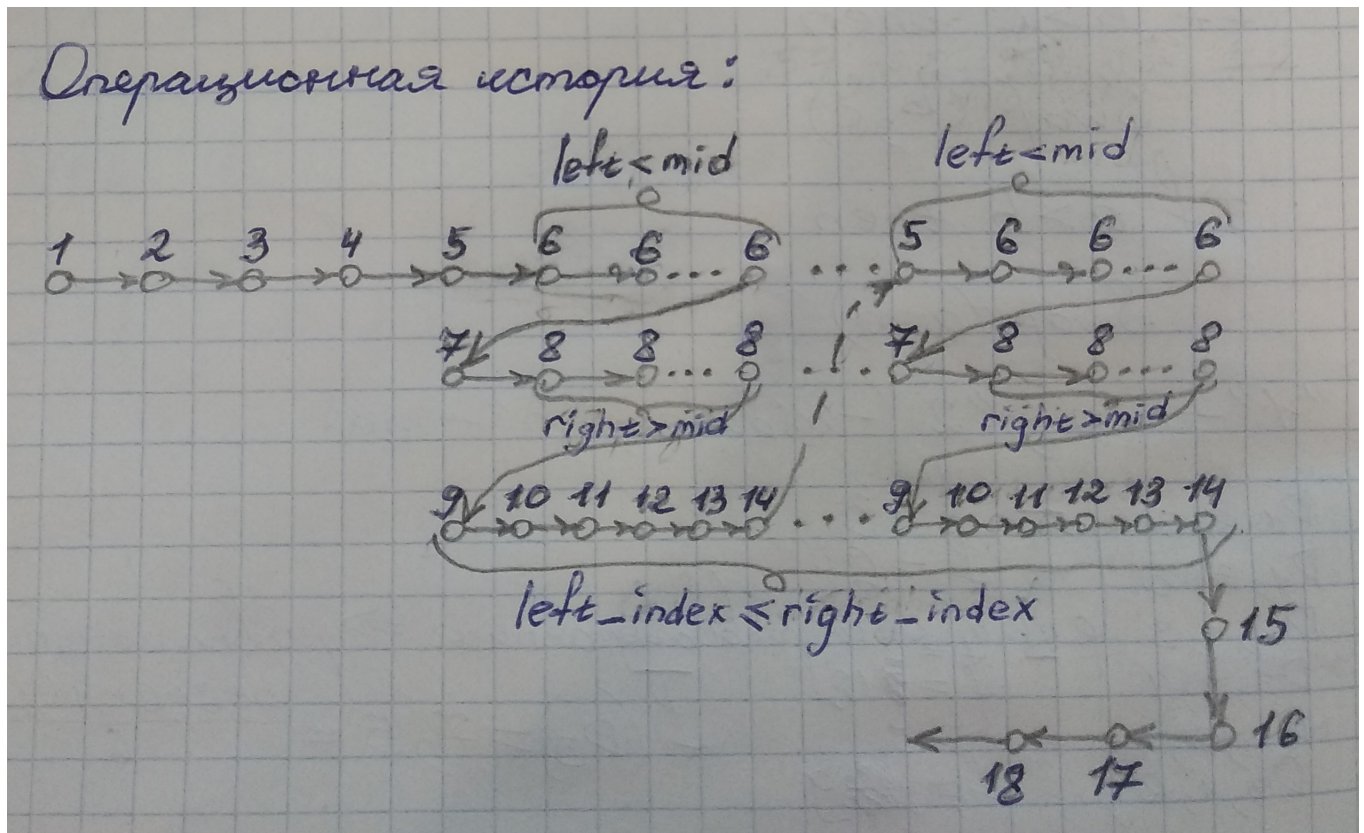 Операционная история:
left<mid left<mid
1 2 3 4 5 6 6 ... 6 ... 5 6 6 ... 6
7 8 8 ... 8 ... 7 8 8 ... 8
right>mid right>mid
9 10 11 12 13 14 ... 9 10 11 12 13 14
left_index≤right_index
15
16
18 17